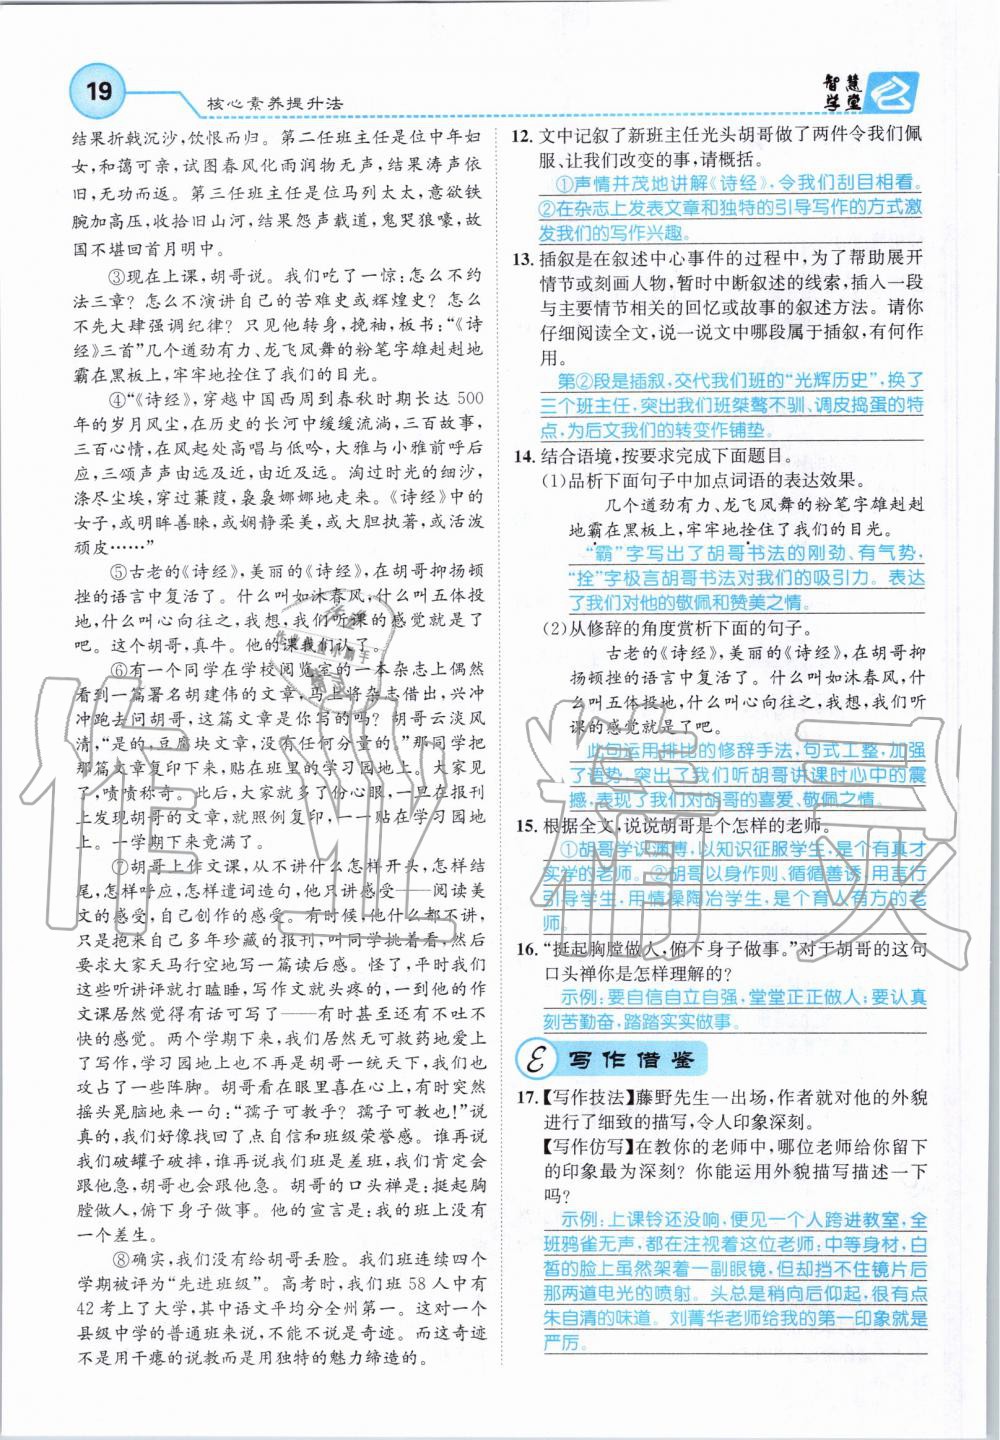 19
核心素养提升法
智慧
学堂
结果折戟沉沙，饮恨而归。第二任班主任是位中年妇
女，和蔼可亲，试图春风化雨润物无声，结果涛声依
旧，无功而返。第三任班主任是位马列太太，意欲铁
腕加高压，收拾旧山河，结果怨声载道，鬼哭狼嚎，故
国不堪回首月明中。
③现在上课，胡哥说。我们吃了一惊：怎么不约
法三章？怎么不演讲自己的苦难史或辉煌史？怎么
不先大肆强调纪律？只见他转身，挽袖，板书：“《诗
经》三首”几个遒劲有力、龙飞凤舞的粉笔字雄赳赳地
霸在黑板上，牢牢地拴住了我们的目光。
④“《诗经》，穿越中国西周到春秋时期长达 500
年的岁月风尘，在历史的长河中缓缓流淌，三百故事，
三百心情，在风起处高唱与低吟，大雅与小雅前呼后
应，三颂声声由远及近，由近及远。淘过时光的细沙，
涤尽尘埃，穿过蒹葭，袅袅娜娜地走来。《诗经》中的
女子，或明眸善睐，或娴静柔美，或大胆执著，或活泼
顽皮……”
⑤古老的《诗经》，美丽的《诗经》，在胡哥抑扬顿
挫的语言中复活了。什么叫如沐春风，什么叫五体投
地，什么叫心向往之，我想，我们听课的感觉就是了
吧。这个胡哥，真牛。他的课我们认了。
⑥有一个同学在学校阅览室的一本杂志上偶然
看到一篇署名胡建伟的文章，马上将杂志借出，兴冲
冲跑去问胡哥，这篇文章是你写的吗？胡哥云淡风
清，“是的，豆腐块文章，没有任何分量的。”那同学把
那篇文章复印下来，贴在班里的学习园地上。大家见
了，啧啧称奇。此后，大家就多了份心眼，一旦在报刊
上发现胡哥的文章，就照例复印，一一贴在学习园地
上。一学期下来竟满了。
⑦胡哥上作文课，从不讲什么怎样开头，怎样结
尾，怎样呼应，怎样遣词造句，他只讲感受——阅读美
文的感受，自己创作的感受。有时候，他什么都不讲，
只是抱来自己多年珍藏的报刊，叫同学挑着看，然后
要求大家天马行空地写一篇读后感。怪了，平时我们
这些听讲评就打瞌睡，写作文就头疼的，一到他的作
文课居然觉得有话可写了——有时甚至还有不吐不
快的感觉。两个学期下来，我们居然不可救药地爱上
了写作，学习园地上也不再是胡哥一统天下，我们也
攻占了一些阵脚。胡哥看在眼里喜在心上，时常突然
摇头晃脑来一句：“孺子可教乎？孺子可教也！”说
真的，我们好像找回了点自信和班级荣誉感。谁再说
我们破罐子破摔，谁再说我们班是差班，我们肯定会
跟他急，胡哥也会跟他急。胡哥的口头禅是：挺起胸
膛做人，俯下身子做事。他的宣言是：我的班上没有
一个差生。
⑧确实，我们没有给胡哥丢脸。我们班连续四个
学期被评为“先进班级”。高考时，我们班 58 人中有
42 考上了大学，其中语文平均分全州第一。这对一个
县级中学的普通班来说，不能不说是奇迹。而这奇迹
不是用干瘪的说教而是用独特的魅力缔造的。
12. 文中记叙了新班主任光头胡哥做了两件令我们佩
服、让我们改变的事，请概括。
①声情并茂地讲解《诗经》，令我们刮目相看。
②在杂志上发表文章和独特的引导写作的方式激
发我们的写作兴趣。
13. 插叙是在叙述中心事件的过程中，为了帮助展开
情节或刻画人物，暂时中断叙述的线索，插入一段
与主要情节相关的回忆或故事的叙述方法。请你
仔细阅读全文，说一说文中哪段属于插叙，有何作
用。
第②段是插叙，交代我们班的“光辉历史”，换了
三个班主任，突出我们班桀骜不驯、调皮捣蛋的特
点，为后文我们的转变作铺垫。
14. 结合语境，按要求完成下面题目。
(1)品析下面句子中加点词语的表达效果。
几个道劲有力、龙飞凤舞的粉笔字雄赳赳
地霸在黑板上，牢牢地拴住了我们的目光。
“霸”字写出了胡哥书法的刚劲、有气势，
“拴”字极言胡哥书法对我们的吸引力。表达
了我们对他的敬佩和赞美之情。
(2)从修辞的角度赏析下面的句子。
古老的《诗经》，美丽的《诗经》，在胡哥抑
扬顿挫的语言中复活了。什么叫如沐春风，什
么叫五体投地，什么叫心向往之，我想，我们听
课的感觉就是了吧。
此句运用排比的修辞手法，句式工整，加强
了语势，突出了我们听胡哥讲课时心中的震
撼，表现了我们对胡哥的喜爱、敬佩之情。
15. 根据全文，说说胡哥是个怎样的老师。
①胡哥学识渊博，以知识征服学生，是个有真才
实学的老师。②胡哥以身作则、循循善诱，用言行
引导学生，用情操陶冶学生，是个育人有方的老
师。
16. “挺起胸膛做人，俯下身子做事。”对于胡哥的这句
口头禅你是怎样理解的？
示例：要自信自立自强，堂堂正正做人；要认真
刻苦勤奋，踏踏实实做事。
E 写作借鉴
17.【写作技法】藤野先生一出场，作者就对他的外貌
进行了细致的描写，令人印象深刻。
【写作仿写】在教你的老师中，哪位老师给你留下
的印象最为深刻？你能运用外貌描写描述一下
吗？
示例：上课铃还没响，便见一个人跨进教室，全
班鸦雀无声，都在注视着这位老师：中等身材，白
皙的脸上虽然架着一副眼镜，但却挡不住镜片后
那两道电光的喷射。头总是稍向后仰起，很有点
朱自清的味道。刘菁华老师给我的第一印象就是
严厉。
作业精灵